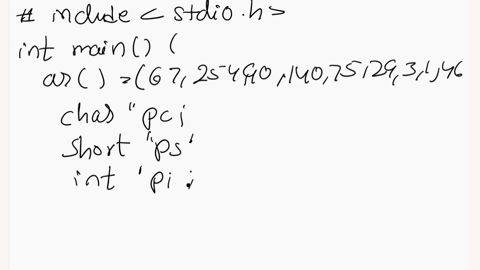 # include < stdio.h>
int main() (
ar() = (67, 25490, 140, 75, 29, 3, 1, 46
char "pc;
short "ps"
int 'pi ;